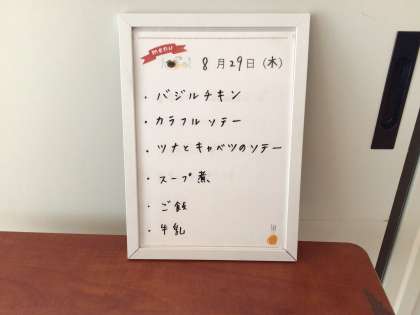 menu
8月29日(木)
・バジルチキン
・カラフルソテー
・ツナとキャベツのソテー
・スープ煮
・ご飯
・牛乳